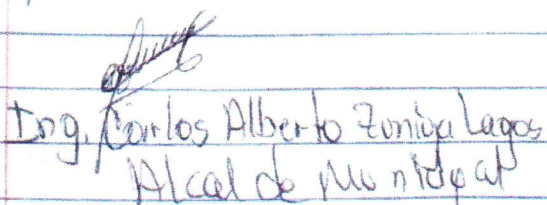 Ing. Carlos Alberto Zuniga Lagos
Alcalde Municipal